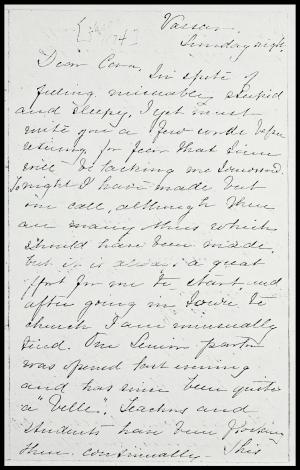 Vassar.
Sunday night.
Dear Cora,
In spite of
feeling miserably stupid
and sleepy, I yet must
write you a few words before
retiring, for fear that time
will be lacking me tomorrow.
Tonight I have made but
one call, although there
are many thus which
should have been made,
but it is a great
effort for me to start, and
after going in town to
church I am unusually
tired. Our Senior parlor
was opened last evening
and has since been quite
a "belle". Teachers and
students have been
there continually. This